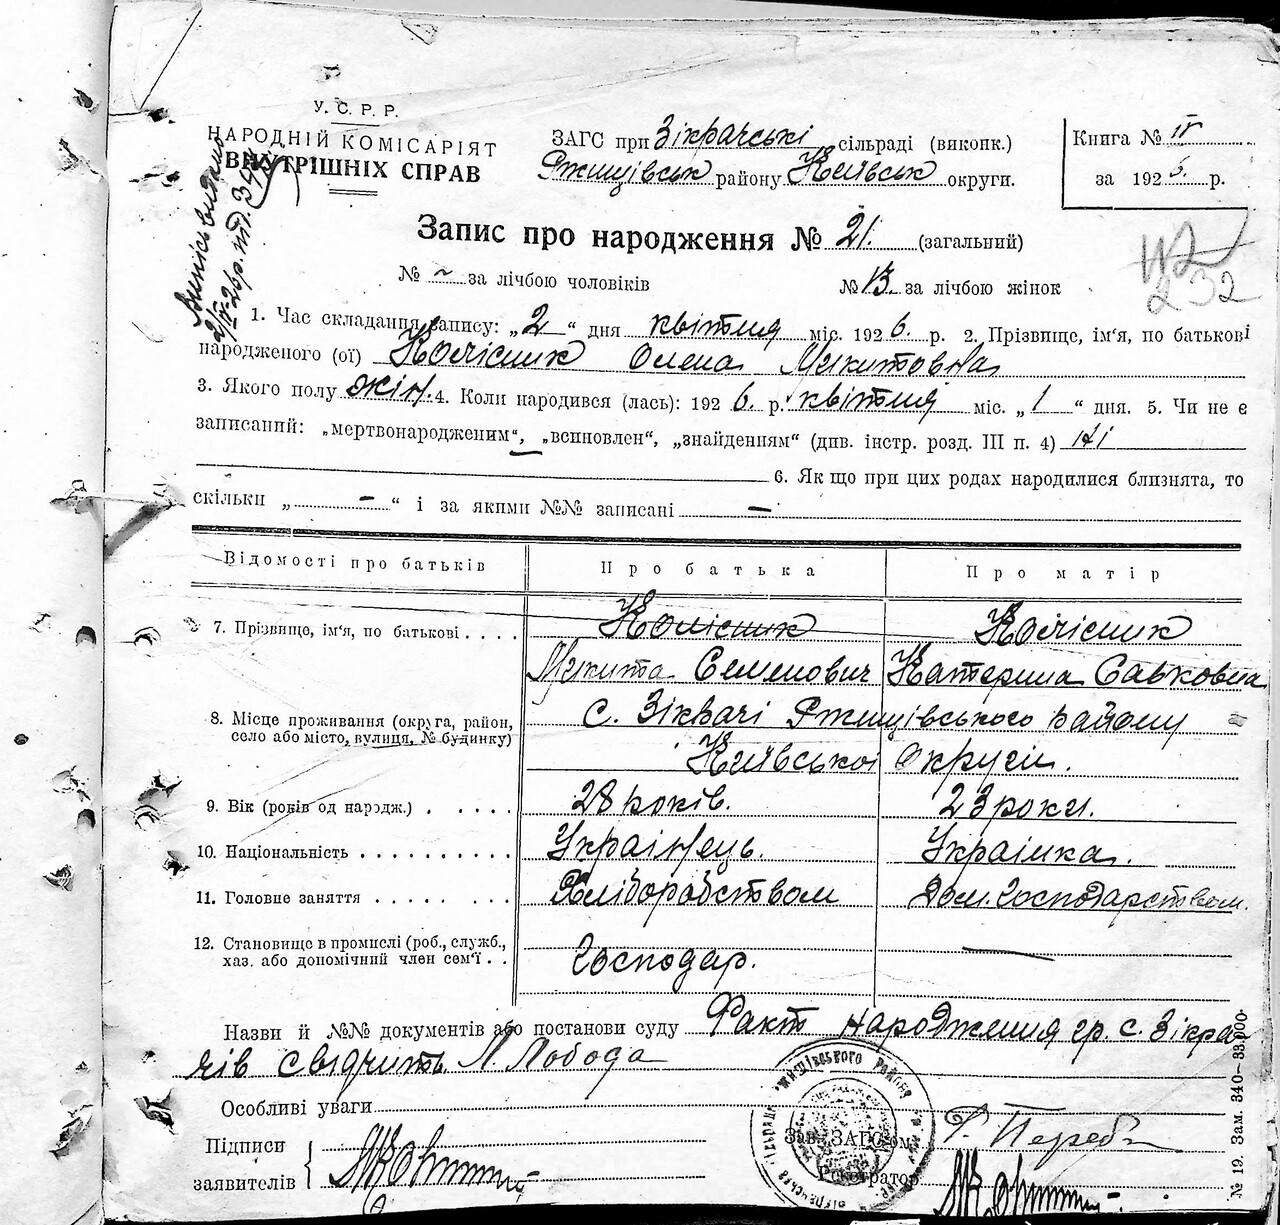 У. С. Р. Р.
НАРОДНІЙ КОМІСАРІЯТ
ВНУТРІШНІХ СПРАВ
ЗАГС при Зікрачські сільраді (виконк.)
Ржищівськ району Київськ округи.
Книга № IV
за 1926 р.
Запис про народження № 21. (загальний)
№ – за лічбою чоловіків № 13. за лічбою жінок
232
1. Час складання запису: „2“ дня квітня міс. 1926. р. 2. Прізвище, ім‘я, по батькові
народженого (ої) Колісник Олена Микитовна
3. Якого полу жін. 4. Коли народився (лась): 1926. р. квітня міс. „1“ дня. 5. Чи не є
записаний: „мертвонародженим“, „всиновлен“, „знайденням“ (див. інстр. розд. III п. 4) Ні
6. Як що при цих родах народилися близнята, то
скільки „ – “ і за якими №№ записані –
Відомості про батьків Про батька Про матір
7. Прізвище, ім‘я, по батькові . . . . Колісник Колісник
Микита Семенович Катерина Савковна
8. Місце проживання (округа, район, с. Зікрачі Ржищівського району
село або місто, вулиця, № будинку) Київської Округи.
9. Вік (років од народж.) . . . . . 28 років. 23 роки.
10. Національність . . . . . . . . . . Українець. Українка.
11. Головне заняття . . . . . . . . Хліборобством Дом. Господарством.
12. Становище в промислі (роб., служб.,
хаз. або допомічний член сем‘ї . . Господар. —
Назви й №№ документів або постанови суду Факт народження гр. с. Зікра-
чів свідчить Л. Лобода
Особливі уваги
Підписи
заявителів
Зав. ЗАГС‘ом
Реєстратор
№ 19. Зам. 340—33.000